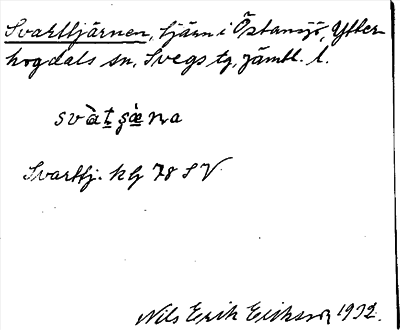 Svarttjärnen, tjärn i Östansjö, Ytter-
hogdals sn, Svegs tg, Jämtl. l.
svàt̠s̠æ̀na
Svarttj. klg 78 SV
Nils Erik Eriksson 1932.